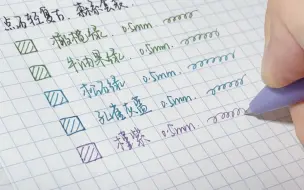 点石轻复古.新标套装
橄榄绿 0.5mm.
牛油果绿 0.5mm.
松石绿 0.5mm.
孔雀灰蓝 0.5mm.
槿紫 0.5mm.